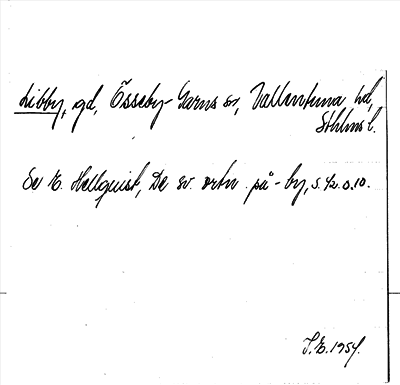 Libby, gd, Össeby-Garns sn, Vallentuna hd,
Sthlms l.
Se E. Hellquist, De sv. ortn. på -by, s. 42 o. 10.
S.E. 1954.